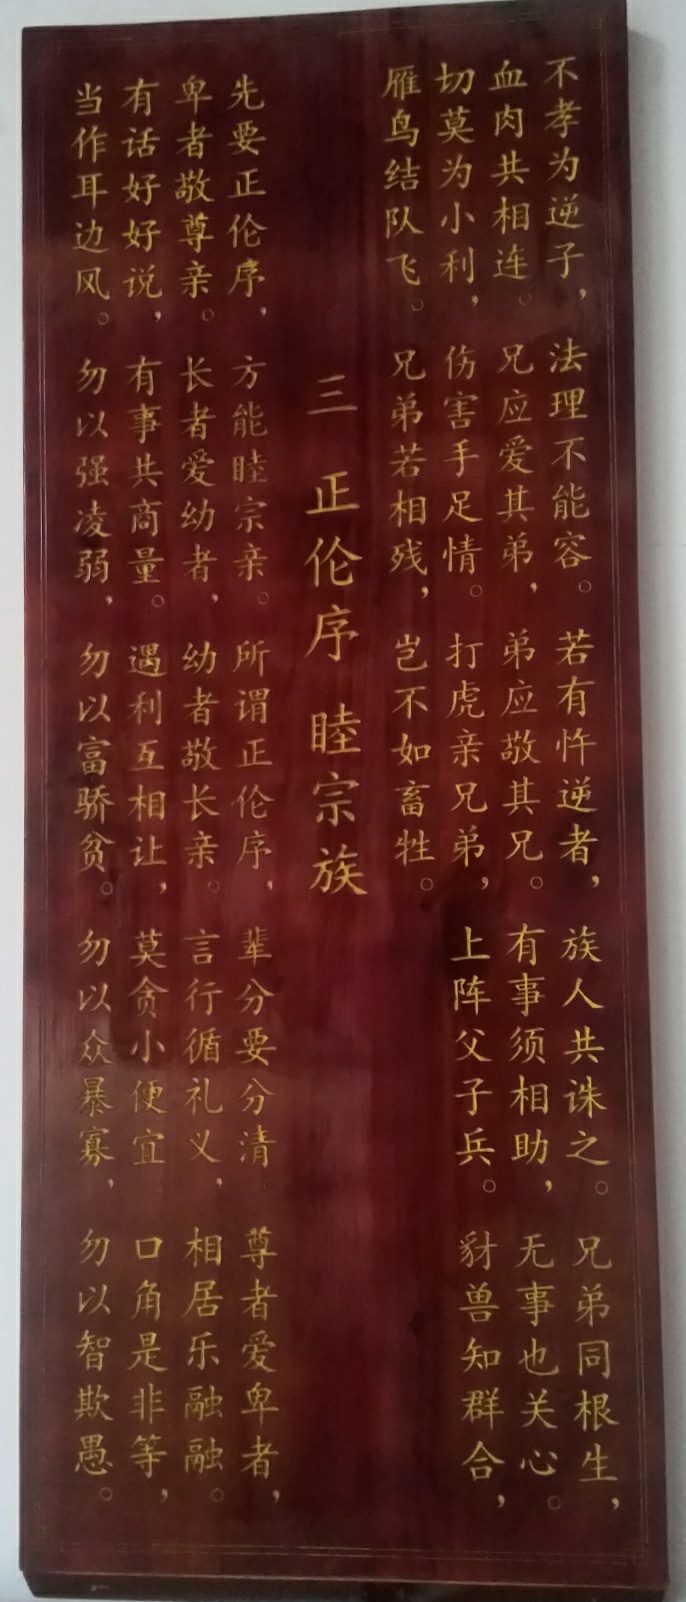 不孝为逆子，法理不能容。若有忤逆者，族人共诛之。兄弟同根生，
血肉共相连。兄应爱其弟，弟应敬其兄。有事须相助，无事也关心。
切莫为小利，伤害手足情。打虎亲兄弟，上阵父子兵。豺兽知群合，
雁鸟结队飞。兄弟若相残，岂不如畜牲。
三 正伦序 睦宗族
先要正伦序，方能睦宗亲。所谓正伦序，辈分要分清。尊者爱卑者，
卑者敬尊亲。长者爱幼者，幼者敬长亲。言行循礼义，相居乐融融。
有话好好说，有事共商量。遇利互相让，莫贪小便宜。口角是非等，
当作耳边风。勿以强凌弱，勿以富骄贫。勿以众暴寡，勿以智欺愚。